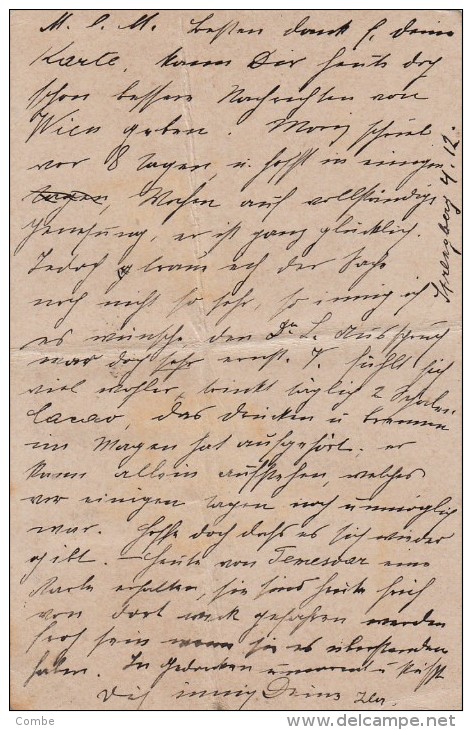 M. l. M. Besten Dank f. deine
Karte, kann Dir heute doch
schon bessere Nachrichten von
Wien geben. Moriz schrieb
vor 8 tagen, u. hofft in einigen
tagen, Wochen auf vollständige
Genesung, er ist ganz glücklich.
Jedoch ich der Sache
noch nicht so sehr, so innig ich
es wünsche, den Dr. L. Ausspruch
war doch sehr ernst. J. fühlt sich
viel wohler, trinkt täglich 2 Schalen
Cacao, das drücken u brennen
im Magen hat aufgehört, er
kann allein aufstehen, welches
vor einigen tagen noch unmöglich
war. Hoffe doch dass es sich wieder
gibt. – Heute von Temesvar eine
Karte erhalten, sie sind heute früh
von dort weck gefahren werden
froh sein wenn sie es überstanden
haben. In Gedanken umarmt u küsst
Dich innig Deine
4/12.
Combe
www.delcampe.net